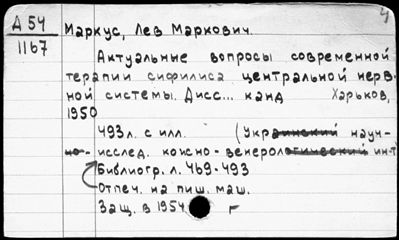 Д 54
1167
Маркус, Лев Маркович.
Актуальные вопросы современной
терапии сифилиса центральной нерв-
ной системы. Дисс... канд Харьков,
1950
493 л. с илл. (Украинский науч-
но-исслед. кожно-венерологический ин-т)
Библиогр. л. 469-493
Отпеч. на пиш. маш.
Защ. в 1954